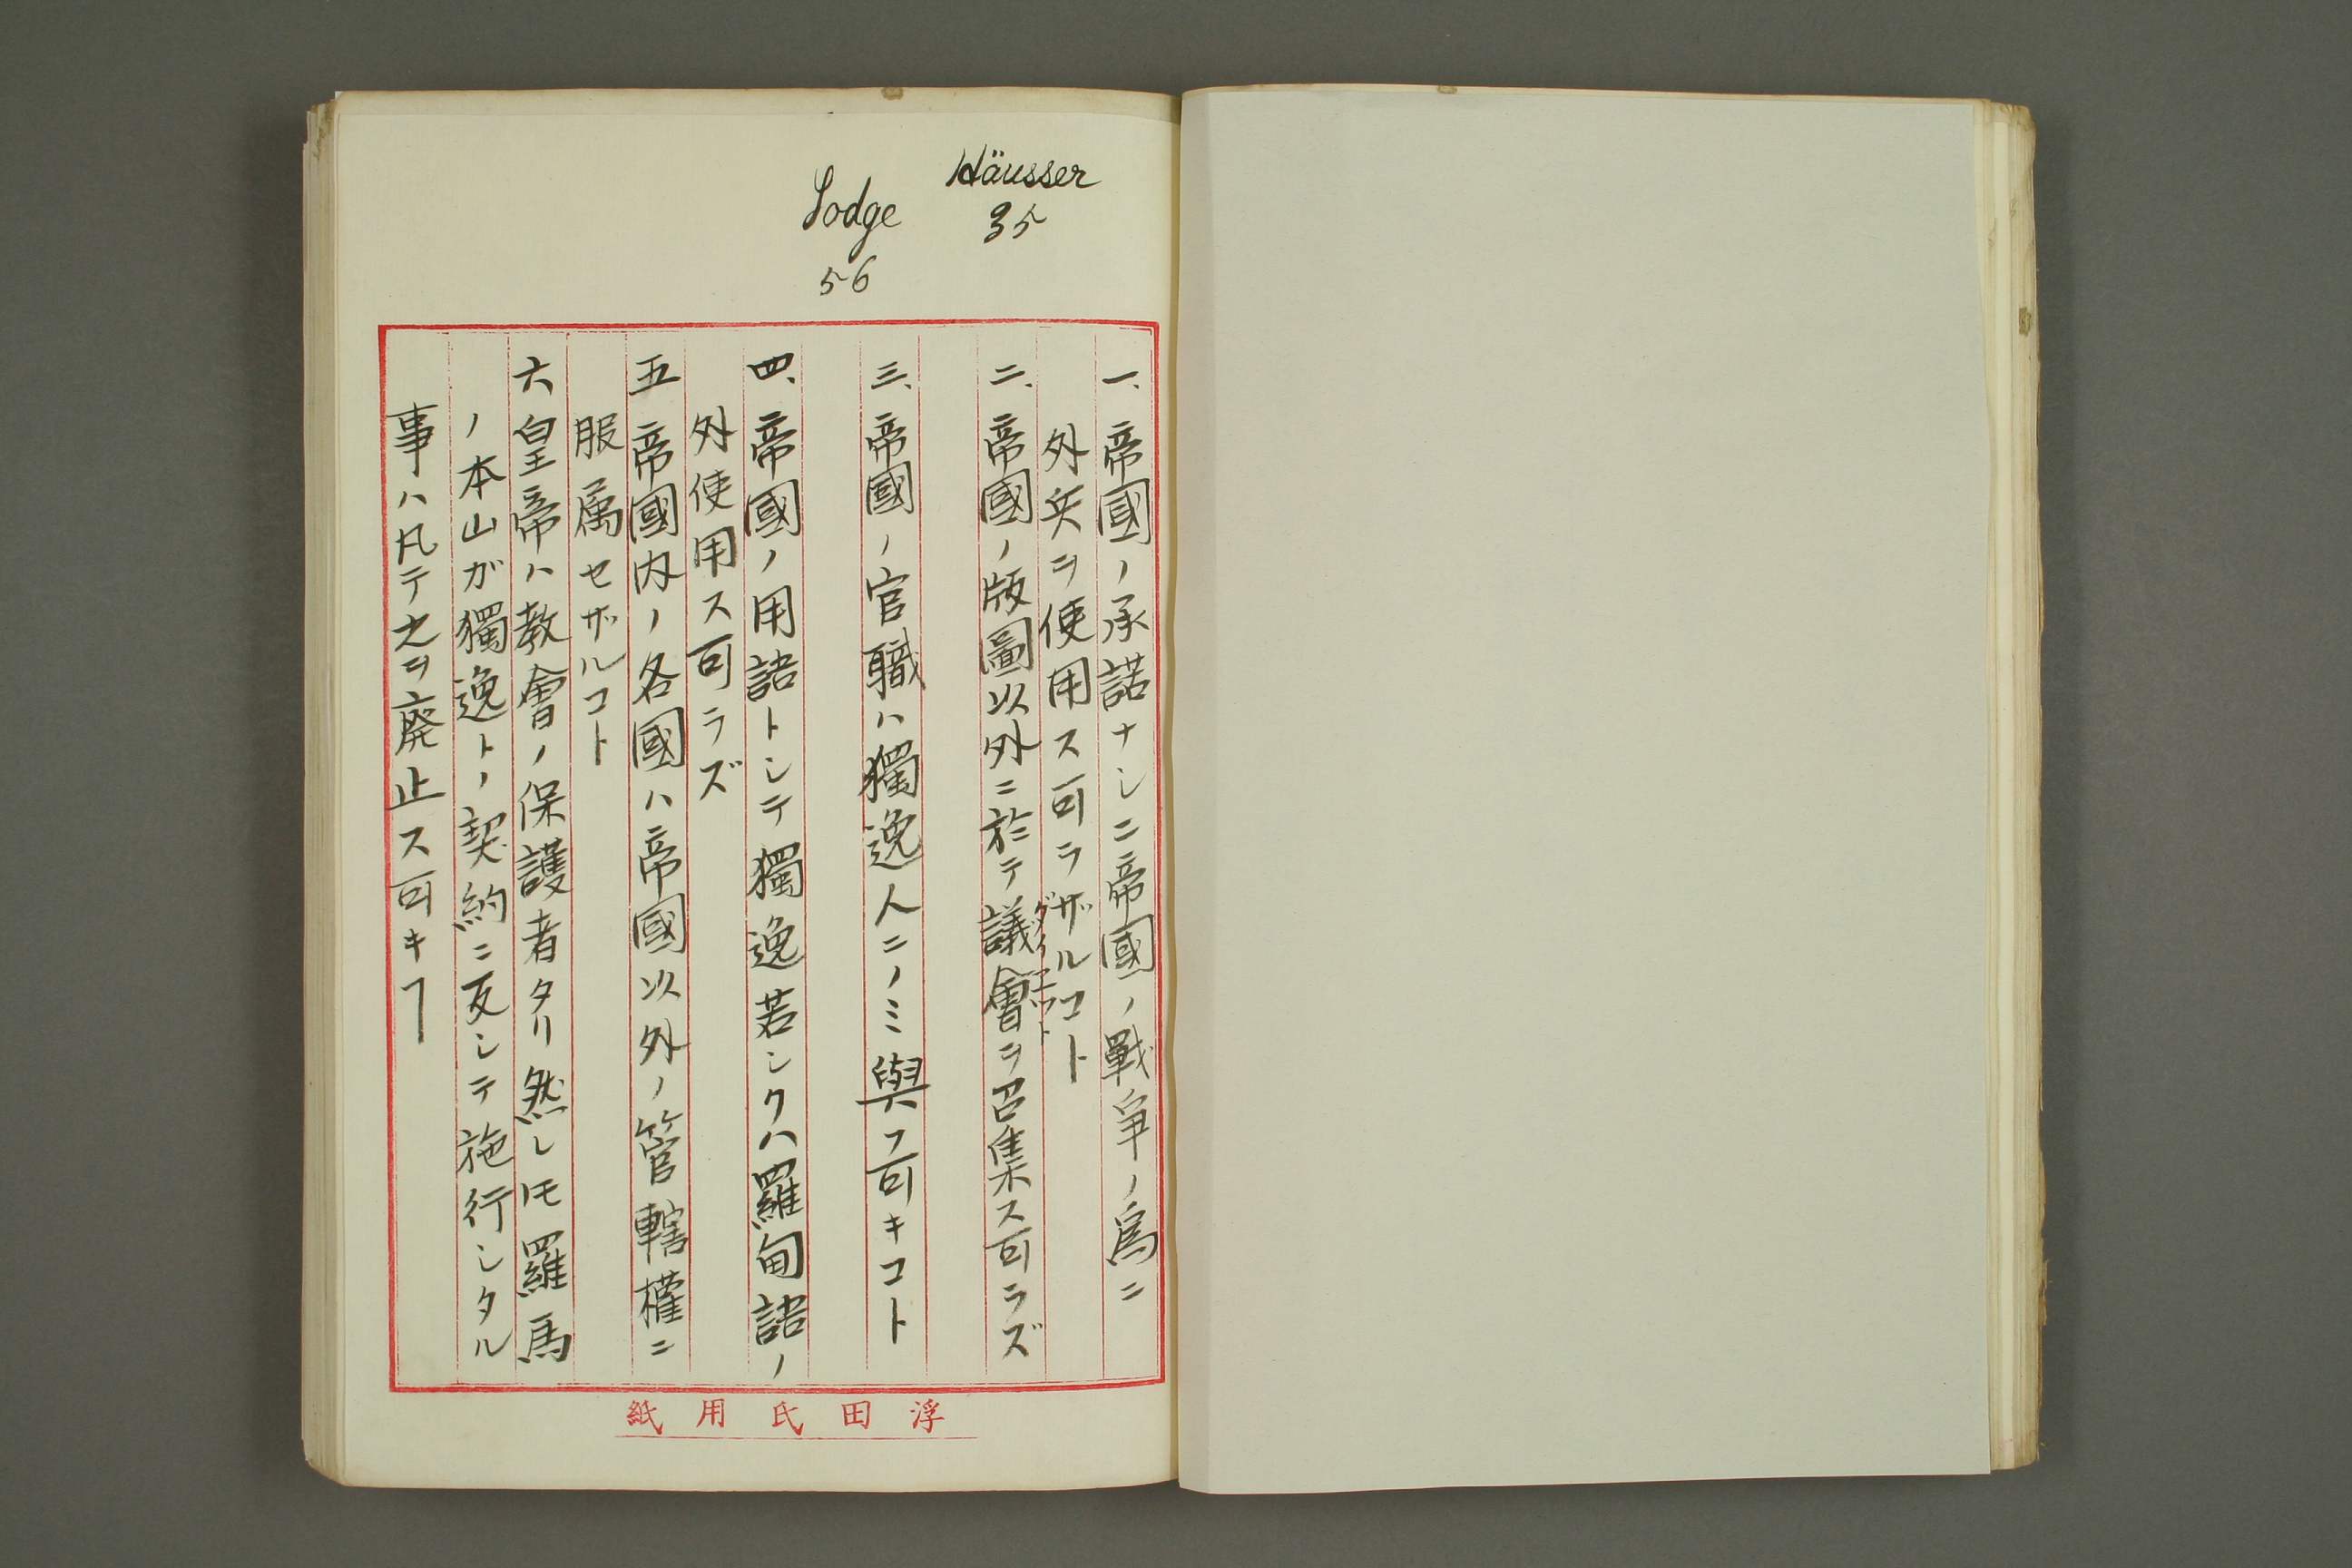 Häusser
35
Lodge
56
一、帝國ノ承諾ナシニ帝國ノ戰爭ノ爲ニ
外兵ヲ使用ス可ラザルコト
二、帝國ノ版圖以外ニ於テ議會ヲ召集ス可ラズ
ダイエット
三、帝國ノ官職ハ獨逸人ニノミ與フ可キコト
四、帝國ノ用語トシテ獨逸若シクハ羅甸語ノ
外使用ス可ラズ
五帝國内ノ各國ハ帝國以外ノ管轄權ニ
服属セザルコト
六皇帝ハ教會ノ保護者タリ然レ𪜈羅馬
ノ本山ガ獨逸トノ契約ニ反シテ施行シタル
事ハ凡テ之ヲ廃止ス可キヿ
紙用氏田浮